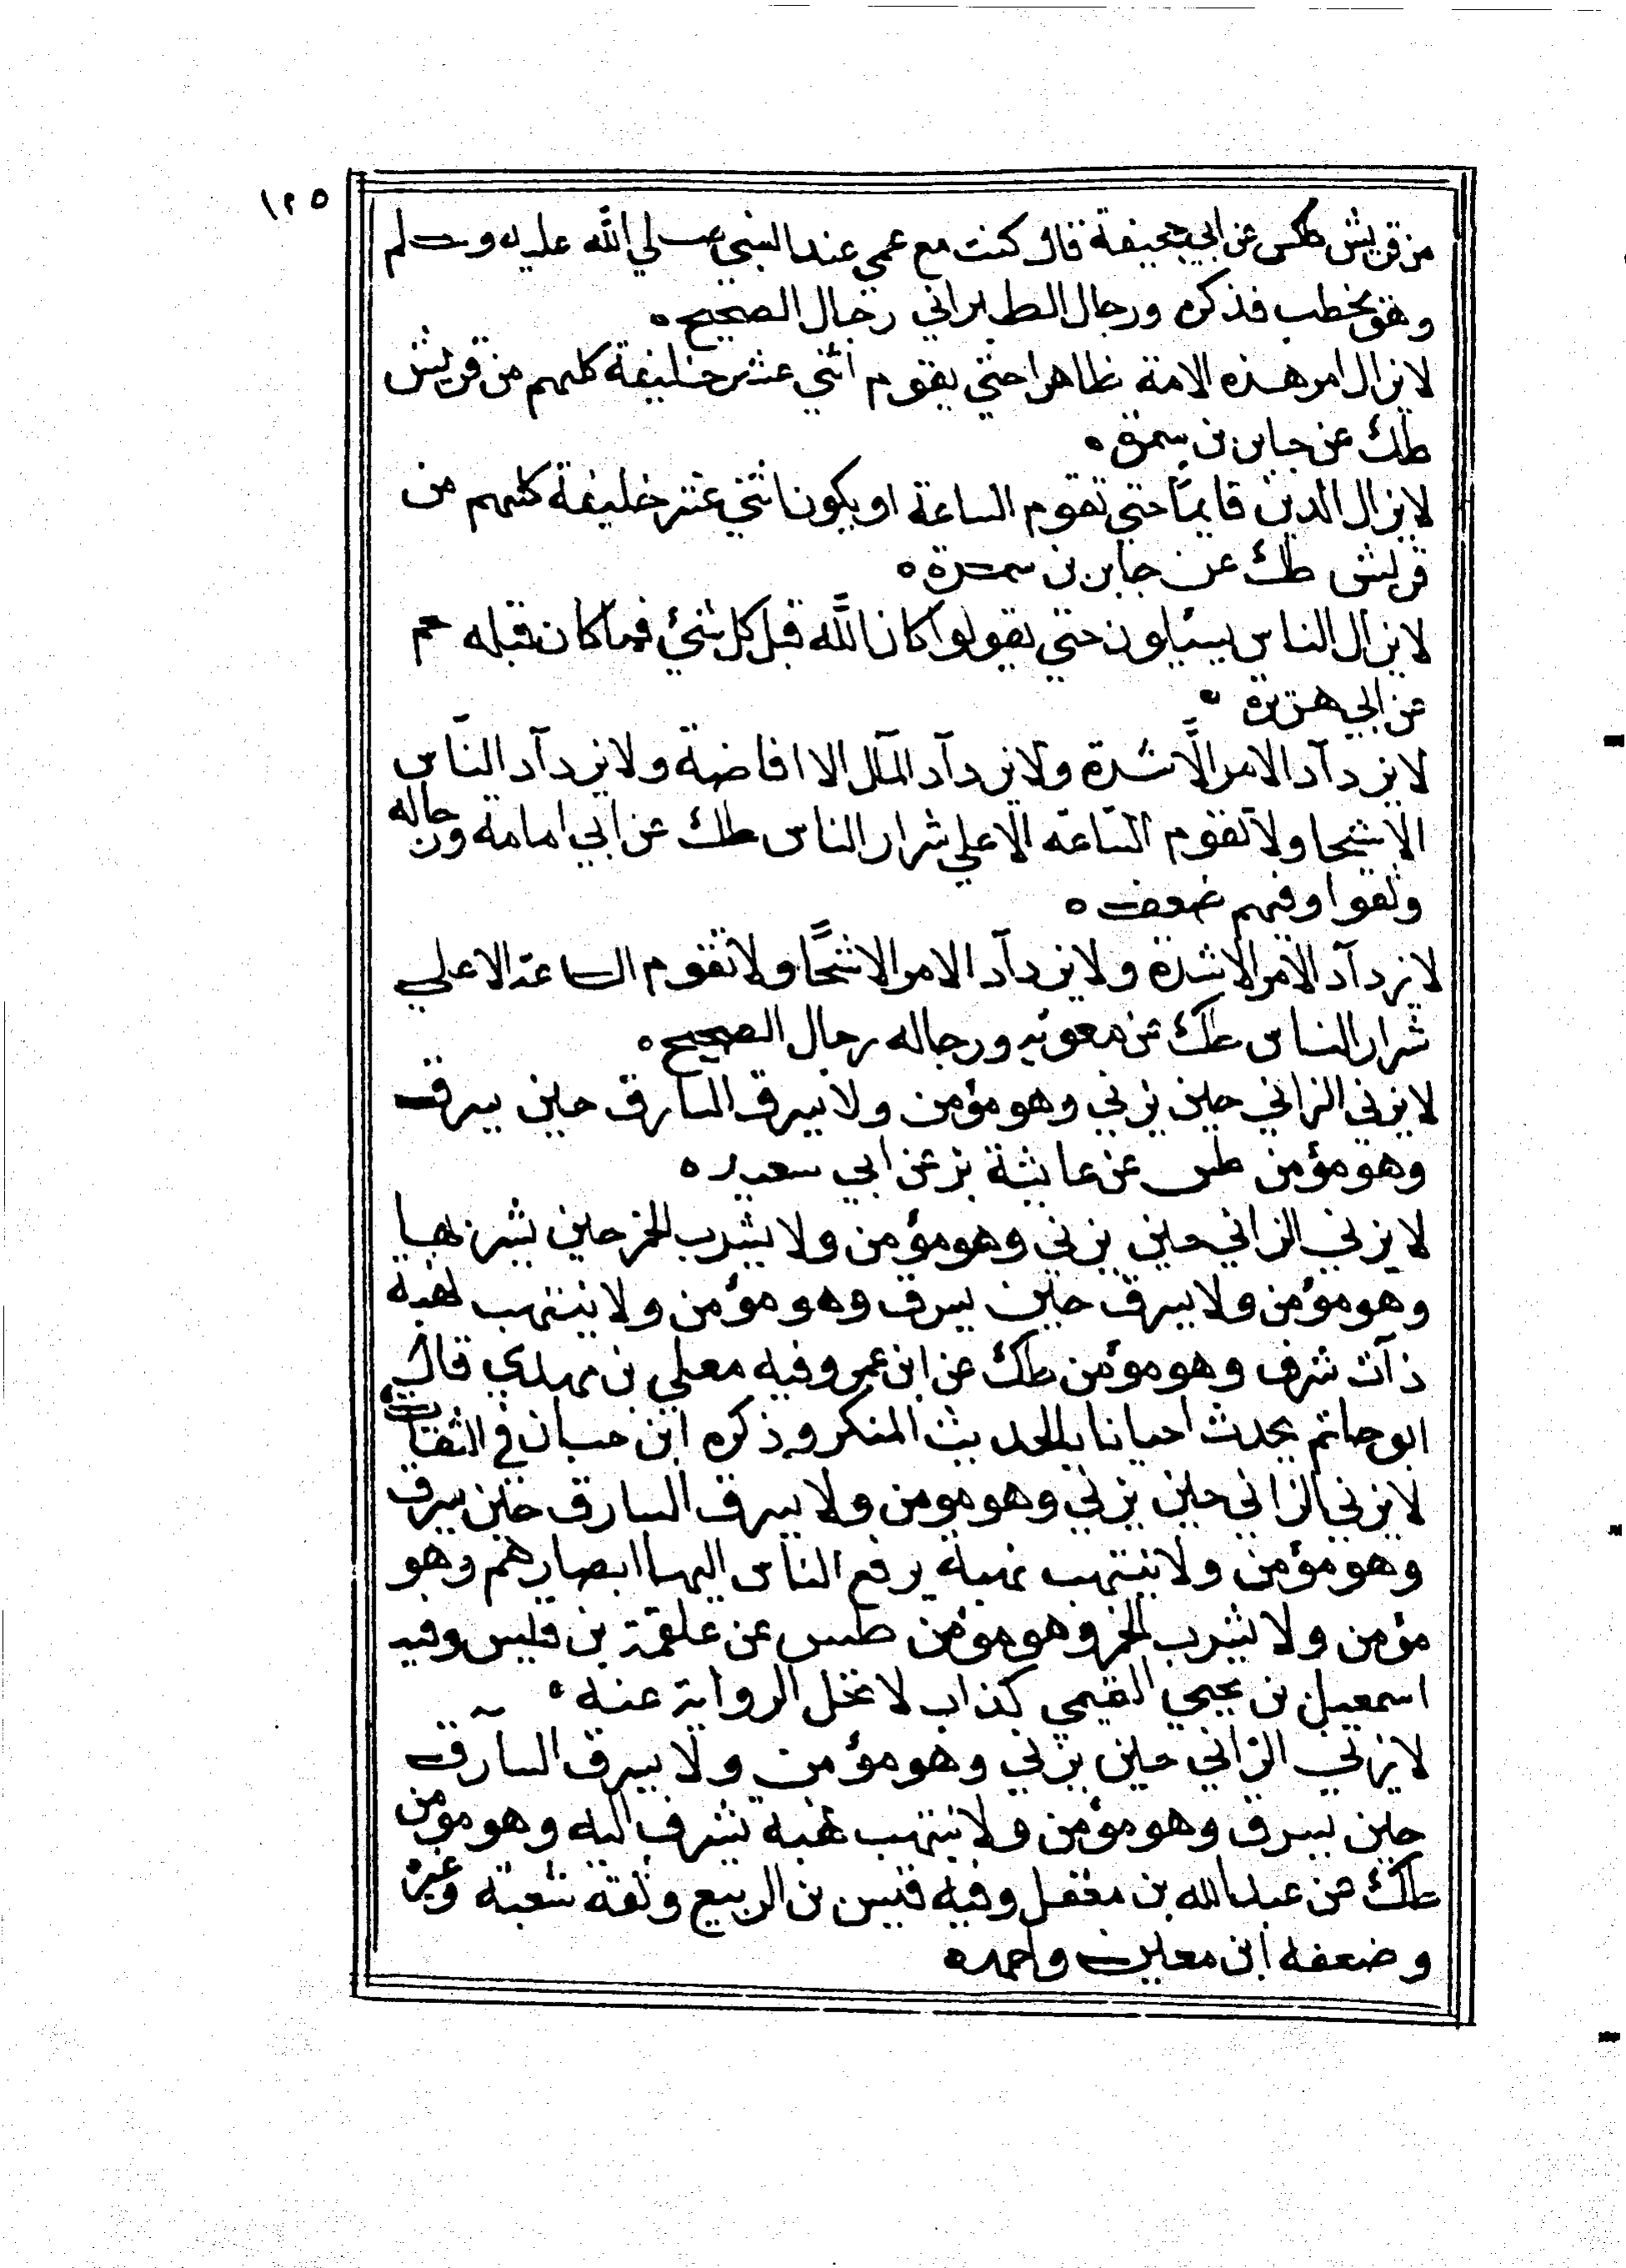 ١٢٥
من قريش طكس عن ابي جحيفة قال كنت مع عمي عند النبي صلي الله عليه وسلم
وهو يخطب فذكره ورجال الطبراني رجال الصحيح ه
لا يزال امر هذه الامة ظاهرا حتي يقوم اثني عشر خليفة كلهم من قريش
طك عن جابر بن سمرة ه
لا يزال الدين قايما حتي تقوم الساعة او يكون اثني عشر خليفة كلهم من
قريش طك عن جابر بن سمرة ه
لا يزال الناس يسئلون حتي يقولوا كان الله قبل كل شئ فما كان قبله حم
عن ابي هريرة ه
لا يزدآد الامر الا شدة ولا يزدآد المال الا افاضة ولا يزدآد الناس
الا شحا ولا تقوم الساعة الا علي شرار الناس طك عن ابي امامة ورجاله
وثقوا وفيهم ضعف ه
لا يزدآد الامر الا شدة ولا يزدآد الامر الا شحًا ولا تقوم الساعة الا علي
شرار الناس طك عن معويه ورجاله رجال الصحيح ه
لا يزني الزاني حين يزني وهو مؤمن ولا يسرق السارق حين يسرق
وهو مؤمن طس عن عايشة بز عن ابي سعيد ه
لا يزني الزاني حين يزني وهو مؤمن ولا يشرب الخمر حين يشربها
وهو مؤمن ولا يسرق حين يسرق وهو مؤمن ولا ينتهب نهبة
ذآت شرف وهو مؤمن طك عن ابن عمر وفيه معلي بن مهدي قال
ابو حاتم يحدث احيانا بالحديث المنكر وذكره ابن حبان في الثقات
لا يزني الزاني حين يزني وهو مومن ولا يسرق السارق حين يسرق
وهو مؤمن ولا ينتهب نهبة يرفع الناس اليها ابصارهم وهو
مؤمن ولا يشرب الخمر وهو مؤمن طس عن علقمة بن قيس وفيه
اسمعيل بن يحيي التيمي كذاب لا تحل الرواية عنه ه
لا يزني الزاني حين يزني وهو مؤمن ولا يسرق السآرق
حين يسرق وهو مؤمن ولا ينتهب نهبه يشرف اليه وهو مومن
طك عن عبد الله بن مغفل وفيه قيس بن الربيع وثقه شعبة وغيره
وضعفه ابن معين واحمد ه